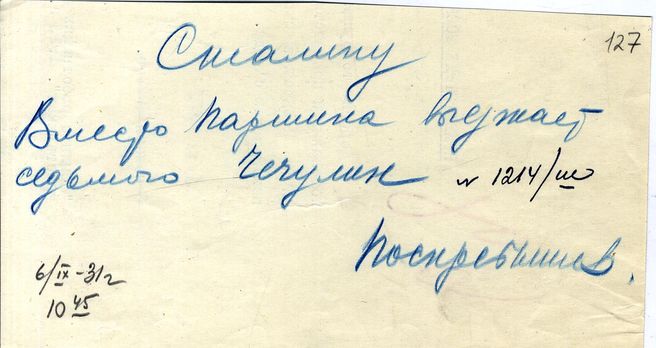 127
Сталину
Вместо Паршина выезжает
седьмого Чечулин
№ 1214/ш
Поскребышев.
6/IX-31г
10 45